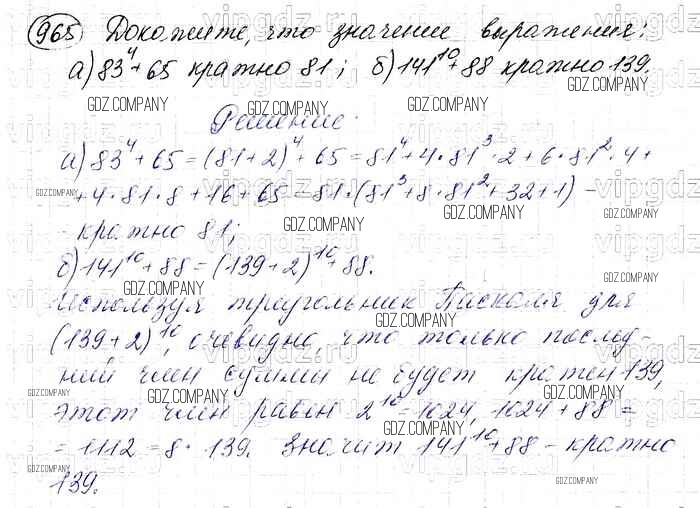 965 Докажите, что значение выражения:
а) 83⁴ + 65 кратно 81; б) 141¹⁰ + 88 кратно 139.
Решение.
а) 83⁴ + 65 = (81+2)⁴ + 65 = 81⁴ + 4·81³·2 + 6·81²·4 +
+ 4·81·8 + 16 + 65 = 81·(81³ + 8·81² + 32 + 1) –
- кратно 81;
б) 141¹⁰ + 88 = (139+2)¹⁰ + 88.
Используя треугольник Паскаля для
(139+2)¹⁰, очевидно, что только послед-
ний член суммы не будет кратен 139,
этот член равен 2¹⁰ = 1024, 1024 + 88 =
= 1112 = 8·139. Значит 141¹⁰ + 88 – кратно
139.